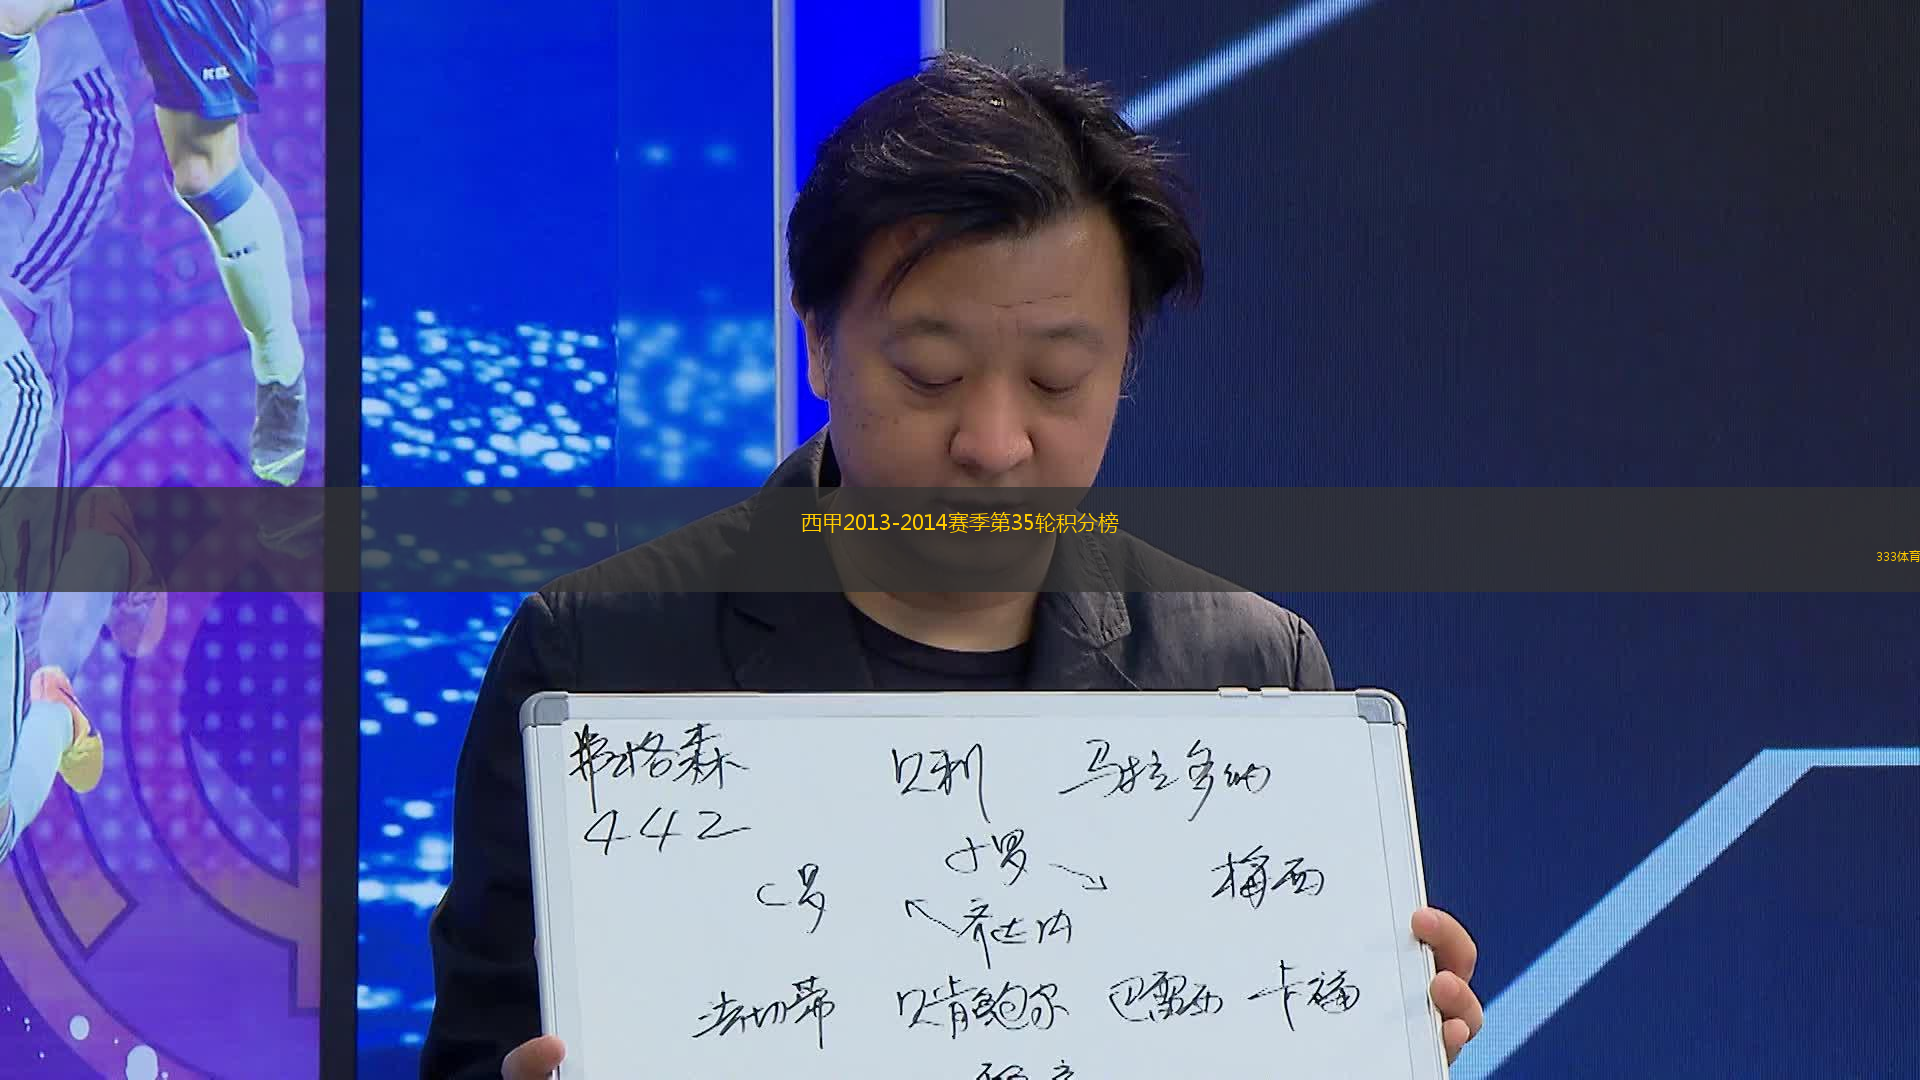 西甲2013-2014赛季第35轮积分榜
333体育
弗格森 贝利 马拉多纳
442
小罗
C罗 梅西
齐达内
法切蒂 贝肯鲍尔 巴雷西 卡福